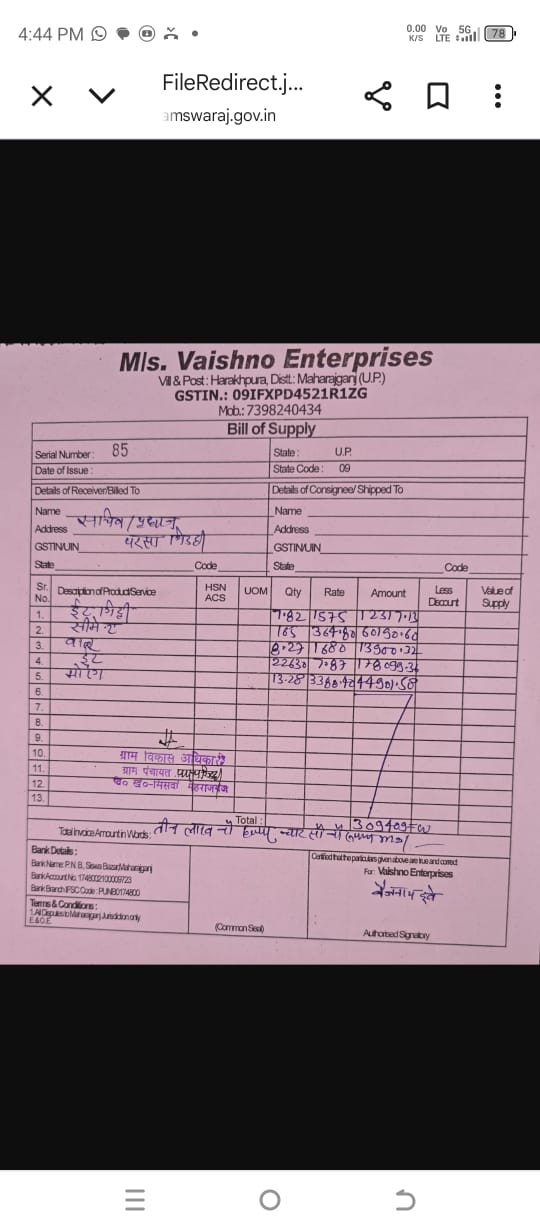 4:44 PM
0.00 K/S Vo LTE 5G 78
FileRedirect.j...
amswaraj.gov.in
M/s. Vaishno Enterprises
Vill & Post : Harakhpura, Distt.: Maharajganj (U.P.)
GSTIN.: 09IFXPD4521R1ZG
Mob.: 7398240434
Bill of Supply
Serial Number : 85 State : U.P.
Date of Issue : State Code : 09
Details of Receiver/Billed To Details of Consignee/ Shipped To
Name सचिव / प्रधान Name
Address परसा Address
GSTIN/UIN GSTIN/UIN
State Code State Code
Sr. No. Description of Product/Service HSN ACS UOM Qty Rate Amount Less Discount Value of Supply
1. ईट गिट्टी 7.82 1575 12317.13
2. सीमेन्ट 165 364.80 60190.60
3. बालू 8.27 1680 13900.32
4. ईट 22630 7.87 178099.36
5. मोरंग 13.28 3380.40 44901.58
6.
7.
8.
9.
10. ग्राम विकास अधिकारी
11. ग्राम पंचायत
12. वि० ख०-सिसवां महराजगंज
13.
Total : 309409
Total Invoice Amount in Words : तीन लाख नौ हजार चार सौ नौ रुपया मात्र
Bank Details :
Bank Name: P.N.B., Siswa Bazar, Maharajganj
Bank Account No. 1748002100009723
Bank Branch IFSC Code : PUNB0174800
Terms & Conditions :
1. All Disputes to Maharajganj Jurisdiction only
E.&O.E.
(Common Seal)
Certified that the particulars given above are true and correct
For: Vaishno Enterprises
Authorised Signatory